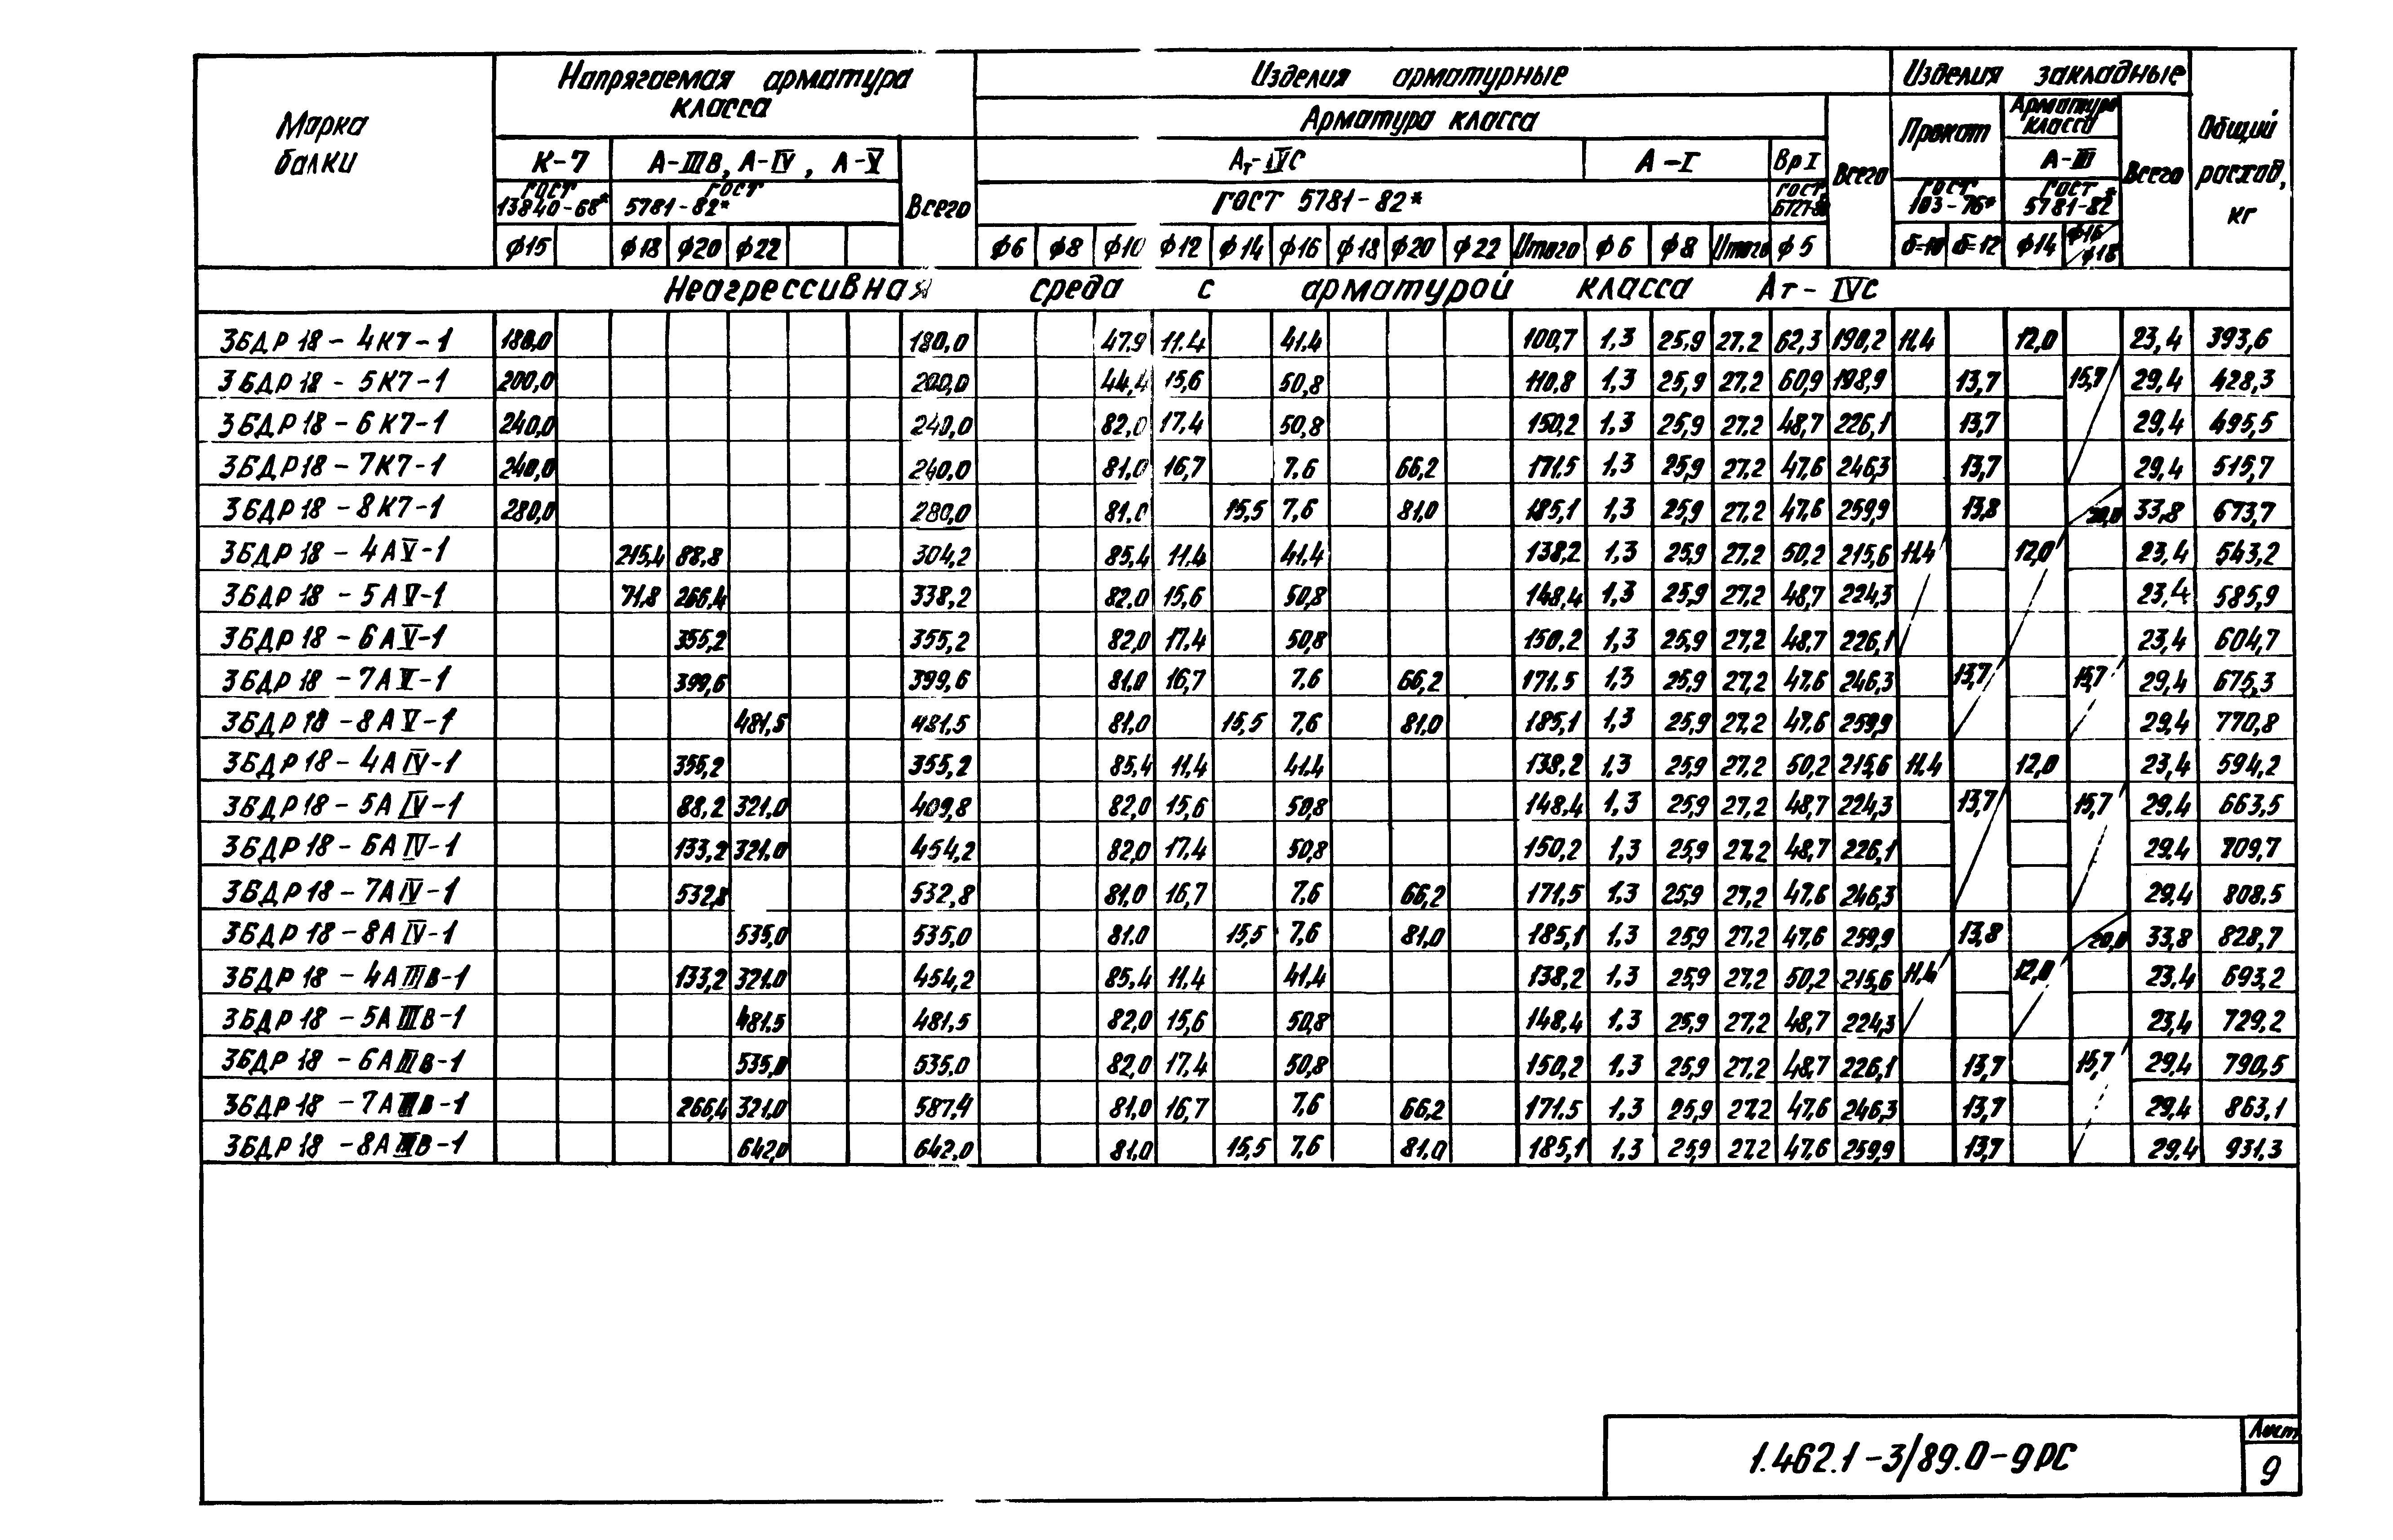 Марка балки
Напрягаемая арматура класса
Изделия арматурные
Изделия закладные
Общий расход, кг
Арматура класса
Всего
Прокат
Арматура класса
Всего
К-7
А-IIIВ, А-IV, А-V
Всего
Ат-IVС
А-I
Вр I
А-III
ГОСТ 13840-68*
ГОСТ 5781-82*
ГОСТ 5781-82*
ГОСТ
ГОСТ 103-76*
ГОСТ 5781-82*
ф15 ф18 ф20 ф22 ф6 ф8 ф10 ф12 ф14 ф16 ф18 ф20 ф22 Итого ф6 ф8 Итого ф5 δ=10 δ=12 ф14 ф16/ф18
Неагрессивная среда с арматурой класса Ат-IVс
3БДР18-4К7-1 180,0 180,0 47.9 11.4 41.4 100,7 1,3 25,9 27.2 62,3 190,2 11.4 12,0 23,4 393,6
3БДР18-5К7-1 200,0 200,0 44,4 15,6 50,8 110,8 1,3 25,9 27,2 60,9 198,9 13,7 15,7 29,4 428,3
3БДР18-6К7-1 240,0 240,0 82,0 17,4 50,8 150,2 1,3 25,9 27.2 48,7 226,1 13,7 29,4 495,5
3БДР18-7К7-1 240,0 240,0 81,0 16,7 7.6 66,2 171,5 1,3 25,9 27.2 47,6 246,3 13,7 29,4 515,7
3БДР18-8К7-1 280,0 280,0 81,0 15,5 7,6 81,0 185,1 1,3 25,9 27,2 47,6 259,9 13,8 20,0 33,8 673,7
3БДР18-4АV-1 215,4 88,8 304,2 85,4 11.4 41.4 138,2 1,3 25,9 27,2 50,2 215,6 11,4 12,0 23,4 543,2
3БДР18-5АV-1 71,8 266,4 338,2 82,0 15,6 50,8 148,4 1,3 25,9 27,2 48,7 224,3 23,4 585,9
3БДР18-6АV-1 355,2 355,2 82,0 17.4 50,8 150,2 1,3 25,9 27,2 48,7 226,1 23,4 604,7
3БДР18-7АV-1 399,6 399,6 81.0 16,7 7.6 66,2 171.5 1,3 25,9 27,2 47.6 246,3 13,7 15,7 29,4 675,3
3БДР18-8АV-1 481,5 481,5 81,0 15,5 7,6 81,0 185,1 1,3 25,9 27,2 47,6 259,9 29,4 770,8
3БДР18-4АIV-1 355,2 355,2 85,4 11,4 41.4 138,2 1,3 25,9 27,2 50,2 215,6 11,4 12,0 23,4 594,2
3БДР18-5АIV-1 88,2 321,0 409,8 82,0 15,6 50,8 148,4 1,3 25,9 27,2 48,7 224,3 13,7 15,7 29,4 663,5
3БДР18-6АIV-1 133,2 321.0 454,2 82,0 17.4 50,8 150,2 1,3 25,9 27.2 48,7 226,1 29,4 709,7
3БДР18-7АIV-1 532,8 532,8 81,0 16,7 7,6 66,2 171,5 1,3 25,9 27,2 47,6 246,3 29,4 808,5
3БДР18-8АIV-1 535,0 535,0 81.0 15,5 7,6 81,0 185,1 1,3 25,9 27,2 47,6 259,9 13,8 20,0 33,8 828,7
3БДР18-4АIIIВ-1 133,2 321.0 454,2 85,4 11,4 41,4 138,2 1,3 25,9 27,2 50,2 215,6 11,4 12,0 23,4 693,2
3БДР18-5АIIIВ-1 481,5 481,5 82,0 15,6 50,8 148,4 1,3 25,9 27,2 48,7 224,3 23,4 729,2
3БДР18-6АIIIВ-1 535,0 535,0 82,0 17,4 50,8 150,2 1,3 25,9 27,2 48,7 226,1 13,7 15,7 29,4 790,5
3БДР18-7АIIIВ-1 266,4 321,0 587,4 81,0 16,7 7,6 66,2 171.5 1,3 25,9 27.2 47,6 246,3 13,7 29,4 863,1
3БДР18-8АIIIВ-1 642,0 642,0 81,0 15,5 7,6 81,0 185,1 1,3 25,9 27,2 47,6 259,9 13,7 29,4 931,3
1.462.1-3/89.0-9РС
Лист
9